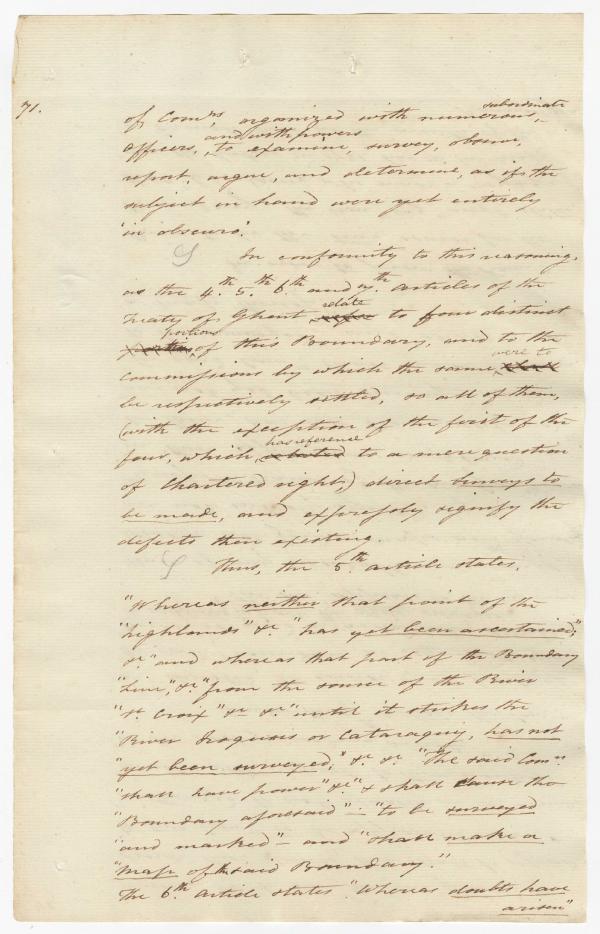 71.
subordinate
of Comrs, organized with numerous,
and with powers
officers, to examine, survey, observe,
report, argue, and determine, as if the
subject in hand were yet entirely
'in obscuro'.
In conformity to this reasoning,
as the 4.th 5.th 6.th and 7.th articles of the
relate
Treaty of Ghent to four distinct
portions
of this Boundary, and to the
were to
commissions by which the same,
be respectively settled, so all of them,
(with the exception of the first of the
has reference
four, which, to a mere question
of Chartered right,) direct surveys to
be made, and expressly signify the
defects then existing.
Thus, the 5.th article states,
"Whereas neither that point of the
"highlands" &c "has yet been ascertained;"
&c "and whereas that part of the Boundary
"Line", &c "from the source of the River
"St Croix" &c &c "until it strikes the
"River Iroquois or Cataraguy, has not
"yet been surveyed;" &c &c "The said Comrs
"shall have power" &c "& shall cause the
"Boundary aforesaid" – "to be surveyed
"and marked" – and "shall make a
"Map of the said Boundary."
The 6.th article states "Whereas doubts have
arisen"